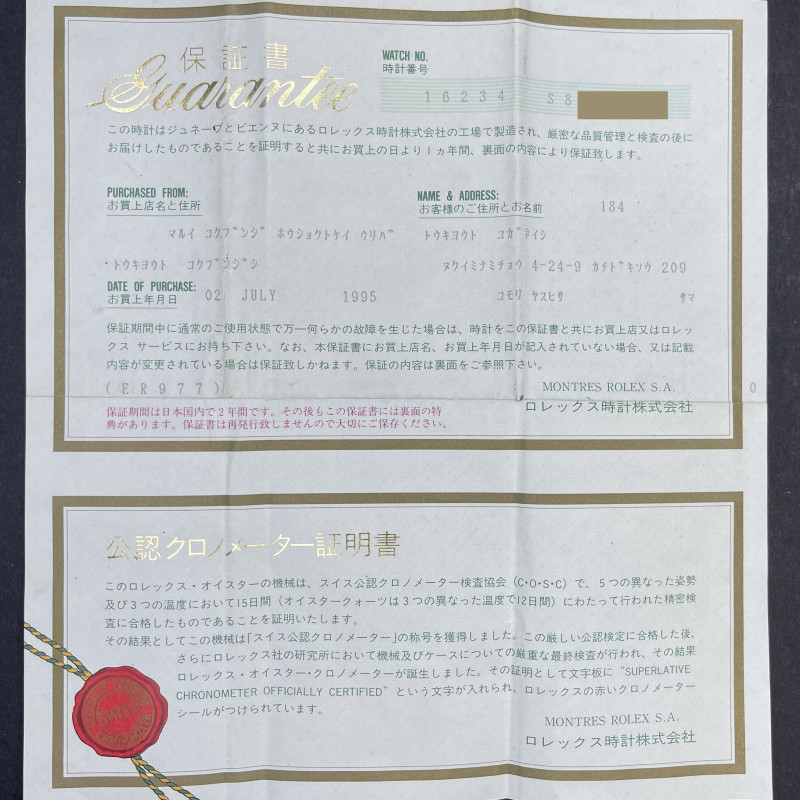 保証書
Guarantee
WATCH NO.
時計番号
16234 S8
この時計はジュネーヴとビエンヌにあるロレックス時計株式会社の工場で製造され、厳密な品質管理と検査の後に
お届けしたものであることを証明すると共にお買上の日より1ヵ年間、裏面の内容により保証致します。
PURCHASED FROM:
お買上店名と住所
NAME & ADDRESS:
お客様のご住所とお名前
184
マルイ コクブンジ ホウショクトケイ ウリバ
トウキヨウト コガネイシ
トウキヨウト コクブンジシ
ヌクイミナミチョウ 4-24-9 カチドキソウ 209
DATE OF PURCHASE:
お買上年月日
02 JULY 1995
コモリ ヤスヒサ サマ
保証期間中に通常のご使用状態で万一何らかの故障を生じた場合は、時計をこの保証書と共にお買上店又はロレッ
クス サービスにお持ち下さい。なお、本保証書にお買上店名、お買上年月日が記入されていない場合、又は記載
内容が変更されている場合は保証致しかねます。保証の内容は裏面をご参照下さい。
(ER977)
MONTRES ROLEX S.A.
0
ロレックス時計株式会社
保証期間は日本国内で2年間です。その後もこの保証書には裏面の特
典があります。保証書は再発行致しませんので大切にご保存ください。
公認クロノメーター証明書
このロレックス・オイスターの機械は、スイス公認クロノメーター検査協会（C・O・S・C）で、5つの異なった姿勢
及び3つの温度において15日間（オイスタークォーツは3つの異なった温度で12日間）にわたって行われた精密検
査に合格したものであることを証明いたします。
その結果としてこの機械は「スイス公認クロノメーター」の称号を獲得しました。この厳しい公認検定に合格した後、
さらにロレックス社の研究所において機械及びケースについての厳重な最終検査が行われ、その結果
ロレックス・オイスター・クロノメーターが誕生しました。その証明として文字板に“SUPERLATIVE
CHRONOMETER OFFICIALLY CERTIFIED”という文字が入れられ、ロレックスの赤いクロノメーター
シールがつけられています。
MONTRES ROLEX S.A.
ロレックス時計株式会社